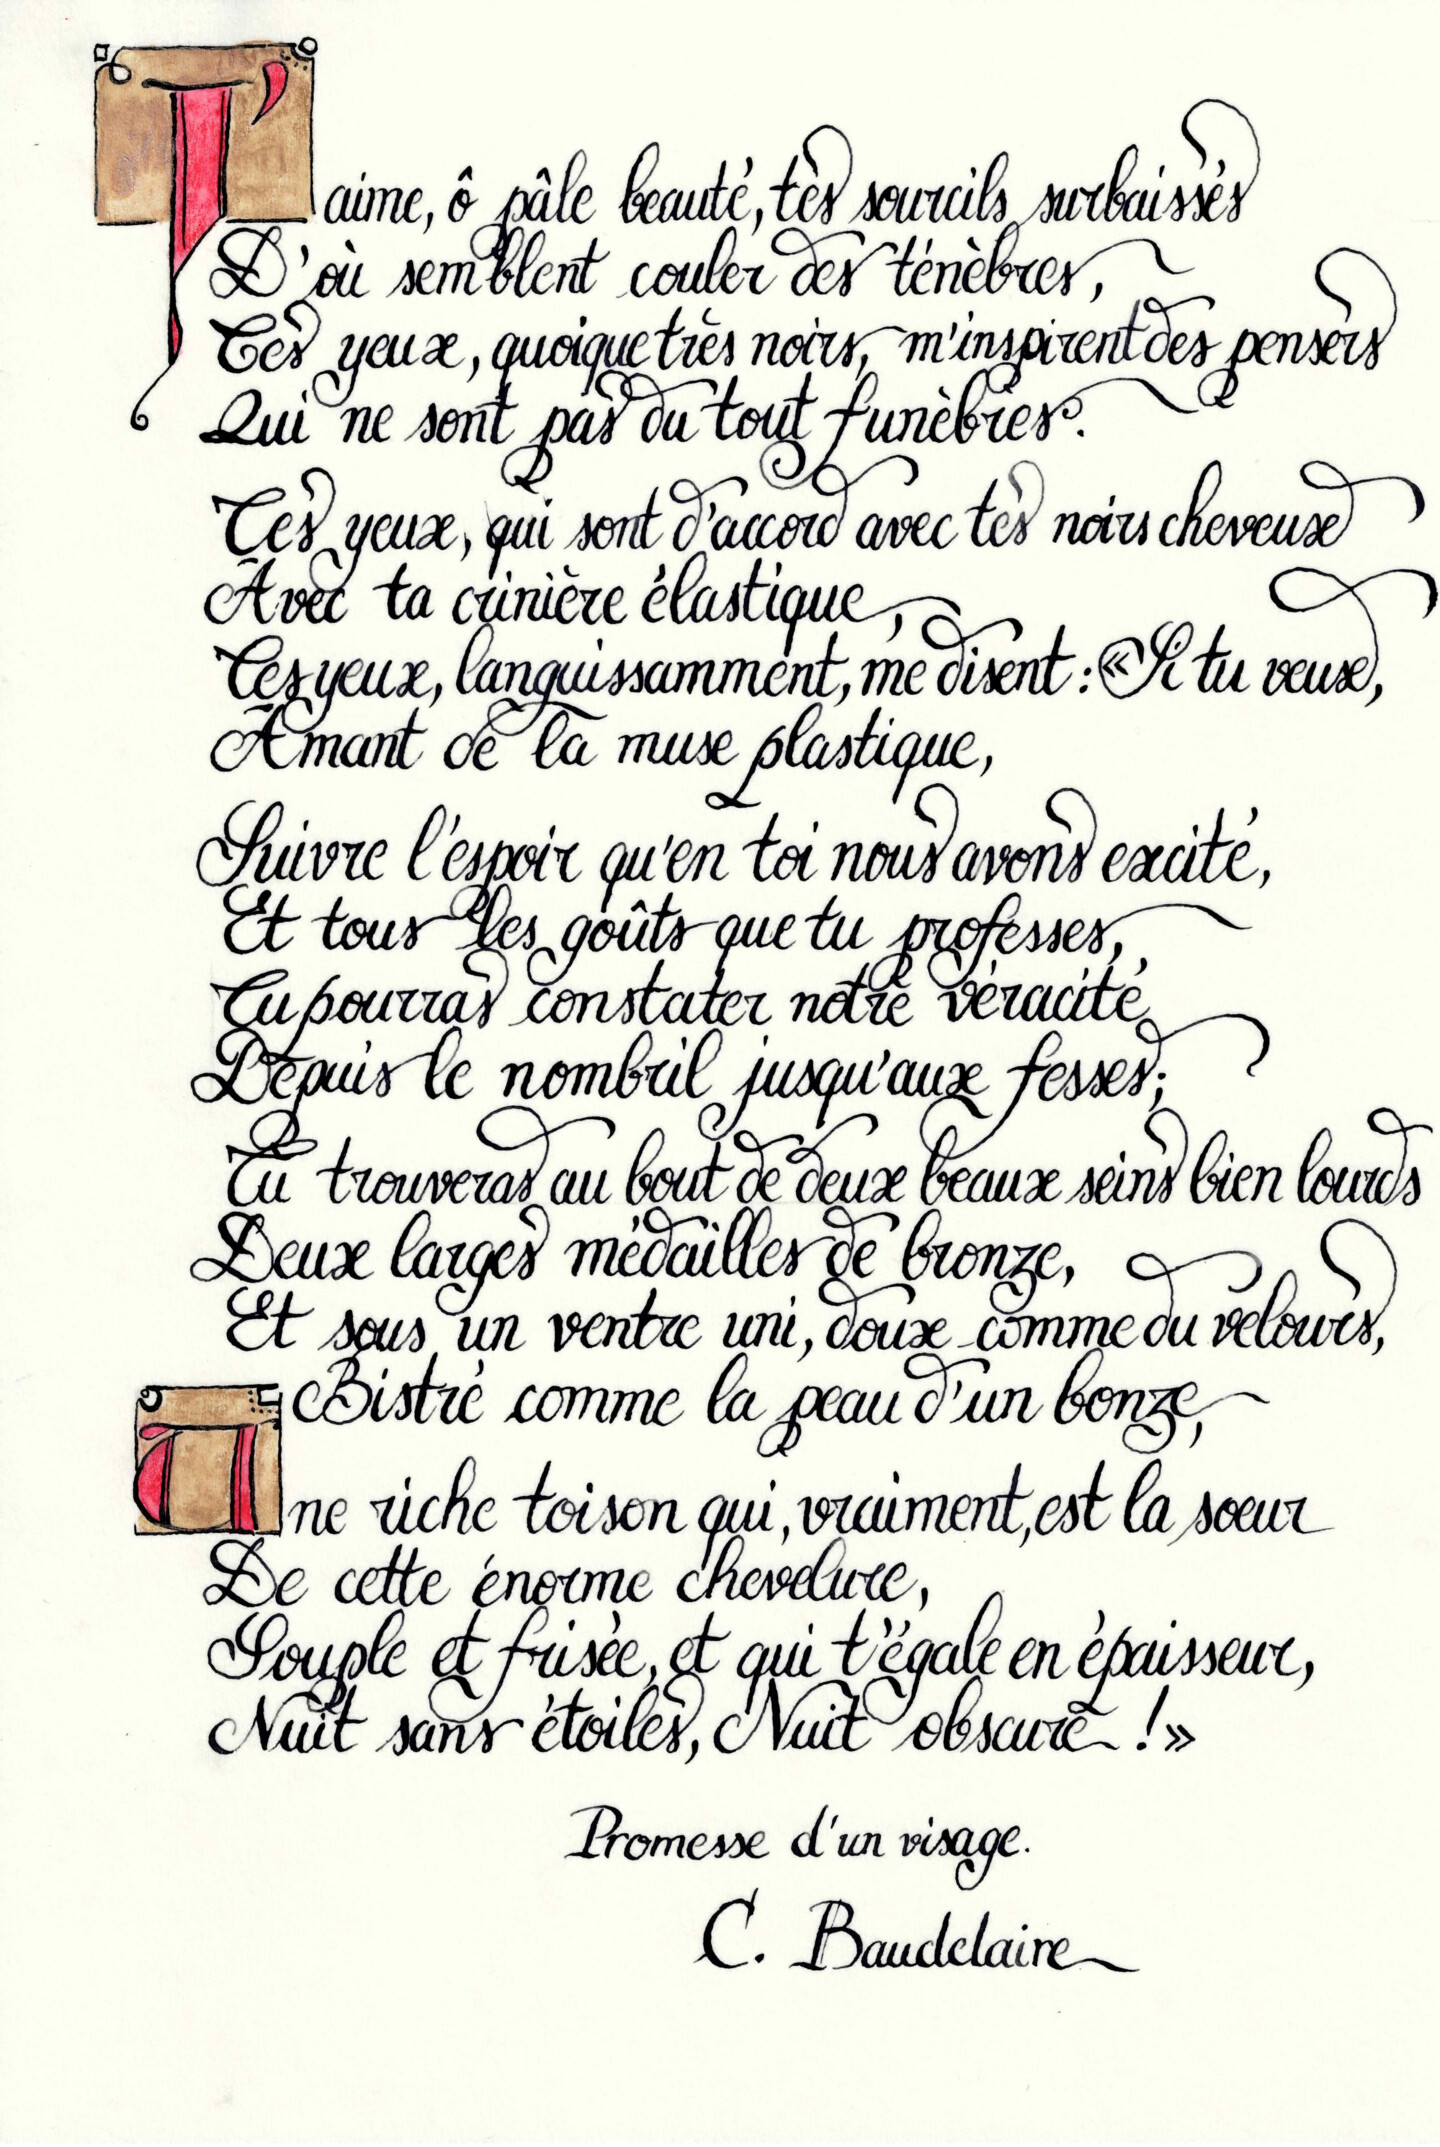 J'aime, ô pâle beauté, tes sourcils surbaissés
D'où semblent couler des ténèbres,
Tes yeux, quoique très noirs, m'inspirent des pensers
Qui ne sont pas du tout funèbres.
Tes yeux, qui sont d'accord avec tes noirs cheveux
Avec ta crinière élastique,
Tes yeux, languissamment, me disent : « Si tu veux,
Amant de la muse plastique,
Suivre l'espoir qu'en toi nous avons excité,
Et tous les goûts que tu professes,
Tu pourras constater notre véracité
Depuis le nombril jusqu'aux fesses;
Tu trouveras au bout de deux beaux seins bien lourds
Deux larges médailles de bronze,
Et sous un ventre uni, doux comme du velours,
Bistré comme la peau d'un bonze,
Une riche toison qui, vraiment, est la soeur
De cette énorme chevelure,
Souple et frisée, et qui t'égale en épaisseur,
Nuit sans étoiles, Nuit obscure ! »
Promesse d'un visage.
C. Baudelaire